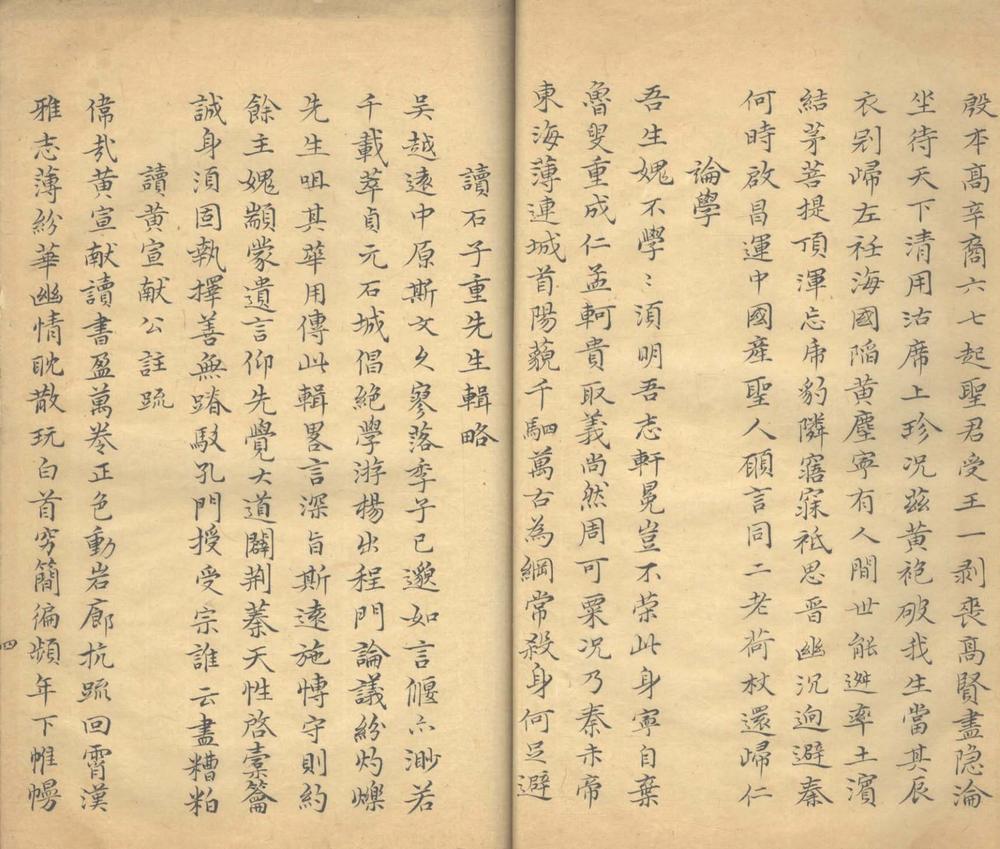 殷本高辛裔六七起聖君受王一剥喪高賢盡隐淪
坐待天下清用沽席上珍况兹黄袍破我生當其辰
衣剜歸左衽海國陷黄塵寧有人間世能逃率土濱
結茅菩提頂渾忘虎豹隣寤寐祗思晋幽沉迥避秦
何時啟昌運中國產聖人願言同二老荷杖還歸仁
論學
吾生媿不學〻須明吾志軒冕豈不荣此身寧自棄
魯叟重成仁孟軻貴取義尚然周可粟况乃秦未帝
東海薄連城首陽藐千駟萬古為綱常殺身何足避
讀石子重先生輯略
吳越遠中原斯文久寥落季子已邈如言偃亦渺若
千載萃貞元石城倡絶學游楊出程門論議紛灼爍
先生咀其華用傳此輯畧言深旨斯遠施慱守則約
餘主媿顓蒙遺言仰先覺大道闢荆蓁天性啓橐籥
誠身須固執擇善無踳駁孔門授受宗誰云盡糟粕
讀黄宣献公註䟽
偉哉黄宣献讀書盈萬卷正色動岩廊抗䟽回霄漢
雅志薄紛華幽情耽散玩白首穷簡编頻年下帷幔
四